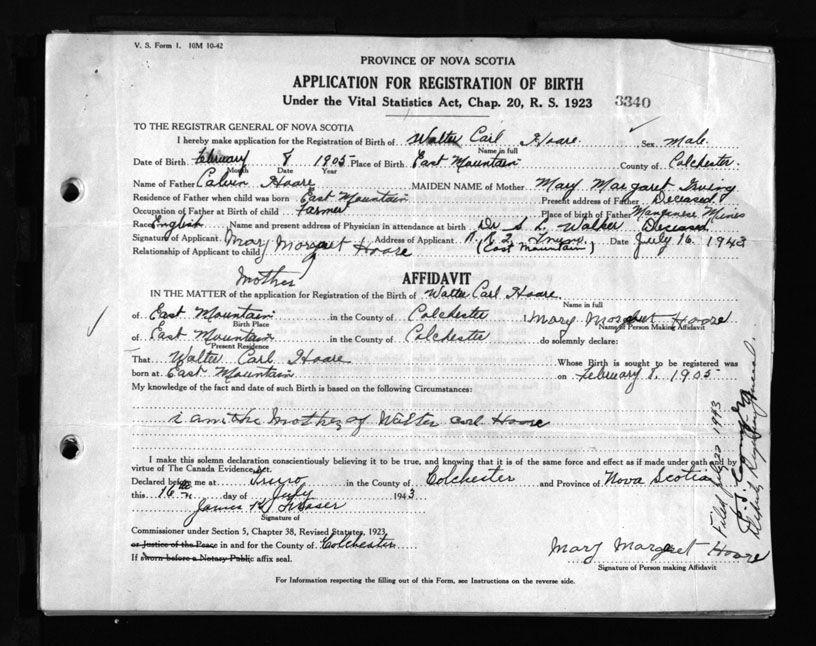 V. S. Form 1. 10M 10-42
PROVINCE OF NOVA SCOTIA
APPLICATION FOR REGISTRATION OF BIRTH
Under the Vital Statistics Act, Chap. 20, R. S. 1923 3340
TO THE REGISTRAR GENERAL OF NOVA SCOTIA
I hereby make application for the Registration of Birth of Walter Carl Hoare Sex Male
Name in full
Date of Birth February 8 1905 Place of Birth East Mountain County of Colchester
Month Date Year
Name of Father Calvin Hoare MAIDEN NAME of Mother Mary Margaret Irving
Residence of Father when child was born East Mountain Present address of Father Deceased
Occupation of Father at Birth of child Farmer Place of birth of Father Manganese Mines
Race English Name and present address of Physician in attendance at birth Dr S. L. Walker Deceased
Signature of Applicant Mary Margaret Hoare Address of Applicant R. R. 2 Truro Date July 16 1943
(East Mountain)
Relationship of Applicant to child
Mother
AFFIDAVIT
IN THE MATTER of the application for Registration of the Birth of Walter Carl Hoare
Name in full
of East Mountain in the County of Colchester I Mary Margaret Hoare
Birth Place Name of Person Making Affidavit
of East Mountain in the County of Colchester do solemnly declare:
Present Residence
That Walter Carl Hoare Whose Birth is sought to be registered was
born at East Mountain on February 8. 1905
My knowledge of the fact and date of such Birth is based on the following Circumstances:
I am the Mother of Walter Carl Hoare
I make this solemn declaration conscientiously believing it to be true, and knowing that it is of the same force and effect as if made under oath and by
virtue of The Canada Evidence Act.
Declared before me at Truro in the County of Colchester and Province of Nova Scotia
this 16th day of July 1943
James H. Fraser
Signature of
Commissioner under Section 5, Chapter 38, Revised Statutes, 1923
or Justice of the Peace in and for the County of Colchester
If sworn before a Notary Public affix seal.
Mary Margaret Hoare
Signature of Person making Affidavit
For Information respecting the filling out of this Form, see Instructions on the reverse side.
Filed July 22 1943
Deputy Registrar General